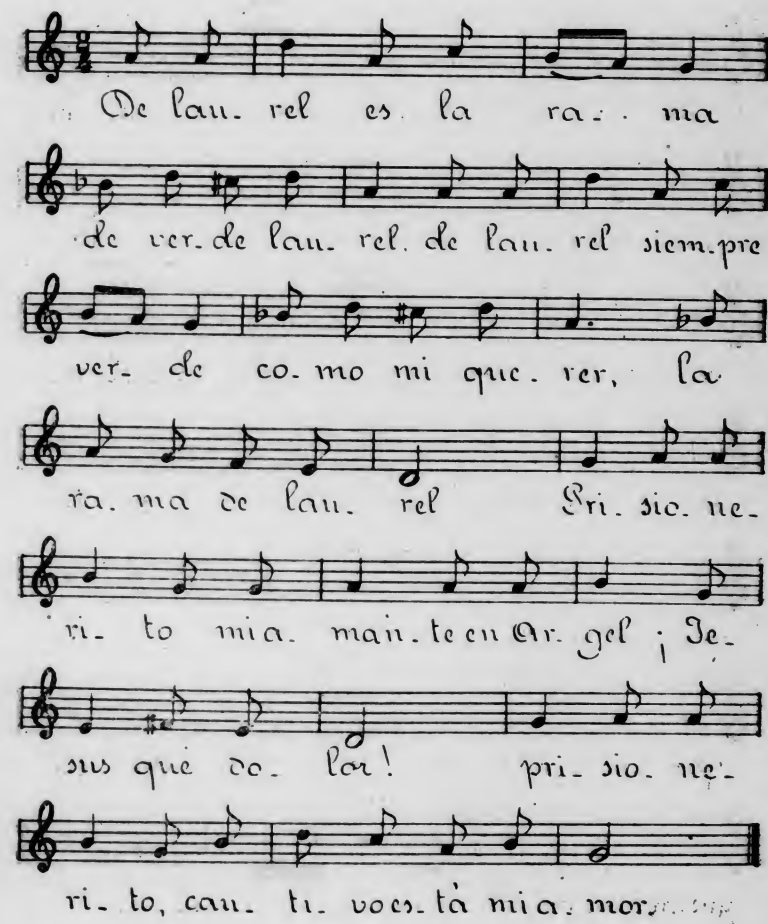 De lau. rel es. la ra. ma
de ver. de lau. rel. de lau. rel siem. pre
ver. de co. mo mi que. rer, la
ra. ma de lau. rel Pri. sio. ne.
ri. to mi a. man. te en Ar. gel ¡ Je.
sus qué do. lor! pri. sio. ne.
ri. to, cau. ti. vo es. tà mi a. mor.